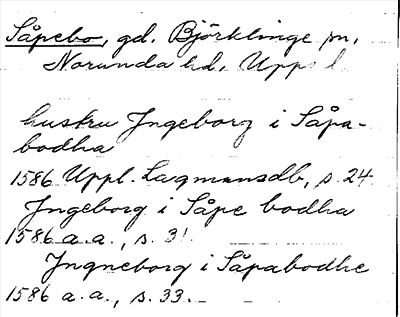 Såpebo, gd. Björklinge sn,
Norunda hd, Uppl
hustru Jngeborg i Såpa-
bodha
1586 Uppl. Lagmansdb, s. 24
Jngeborg i Såpe bodha
1586 a.a., s. 31
Jngneborg i Såpabodhe
1586 a.a., s. 33.